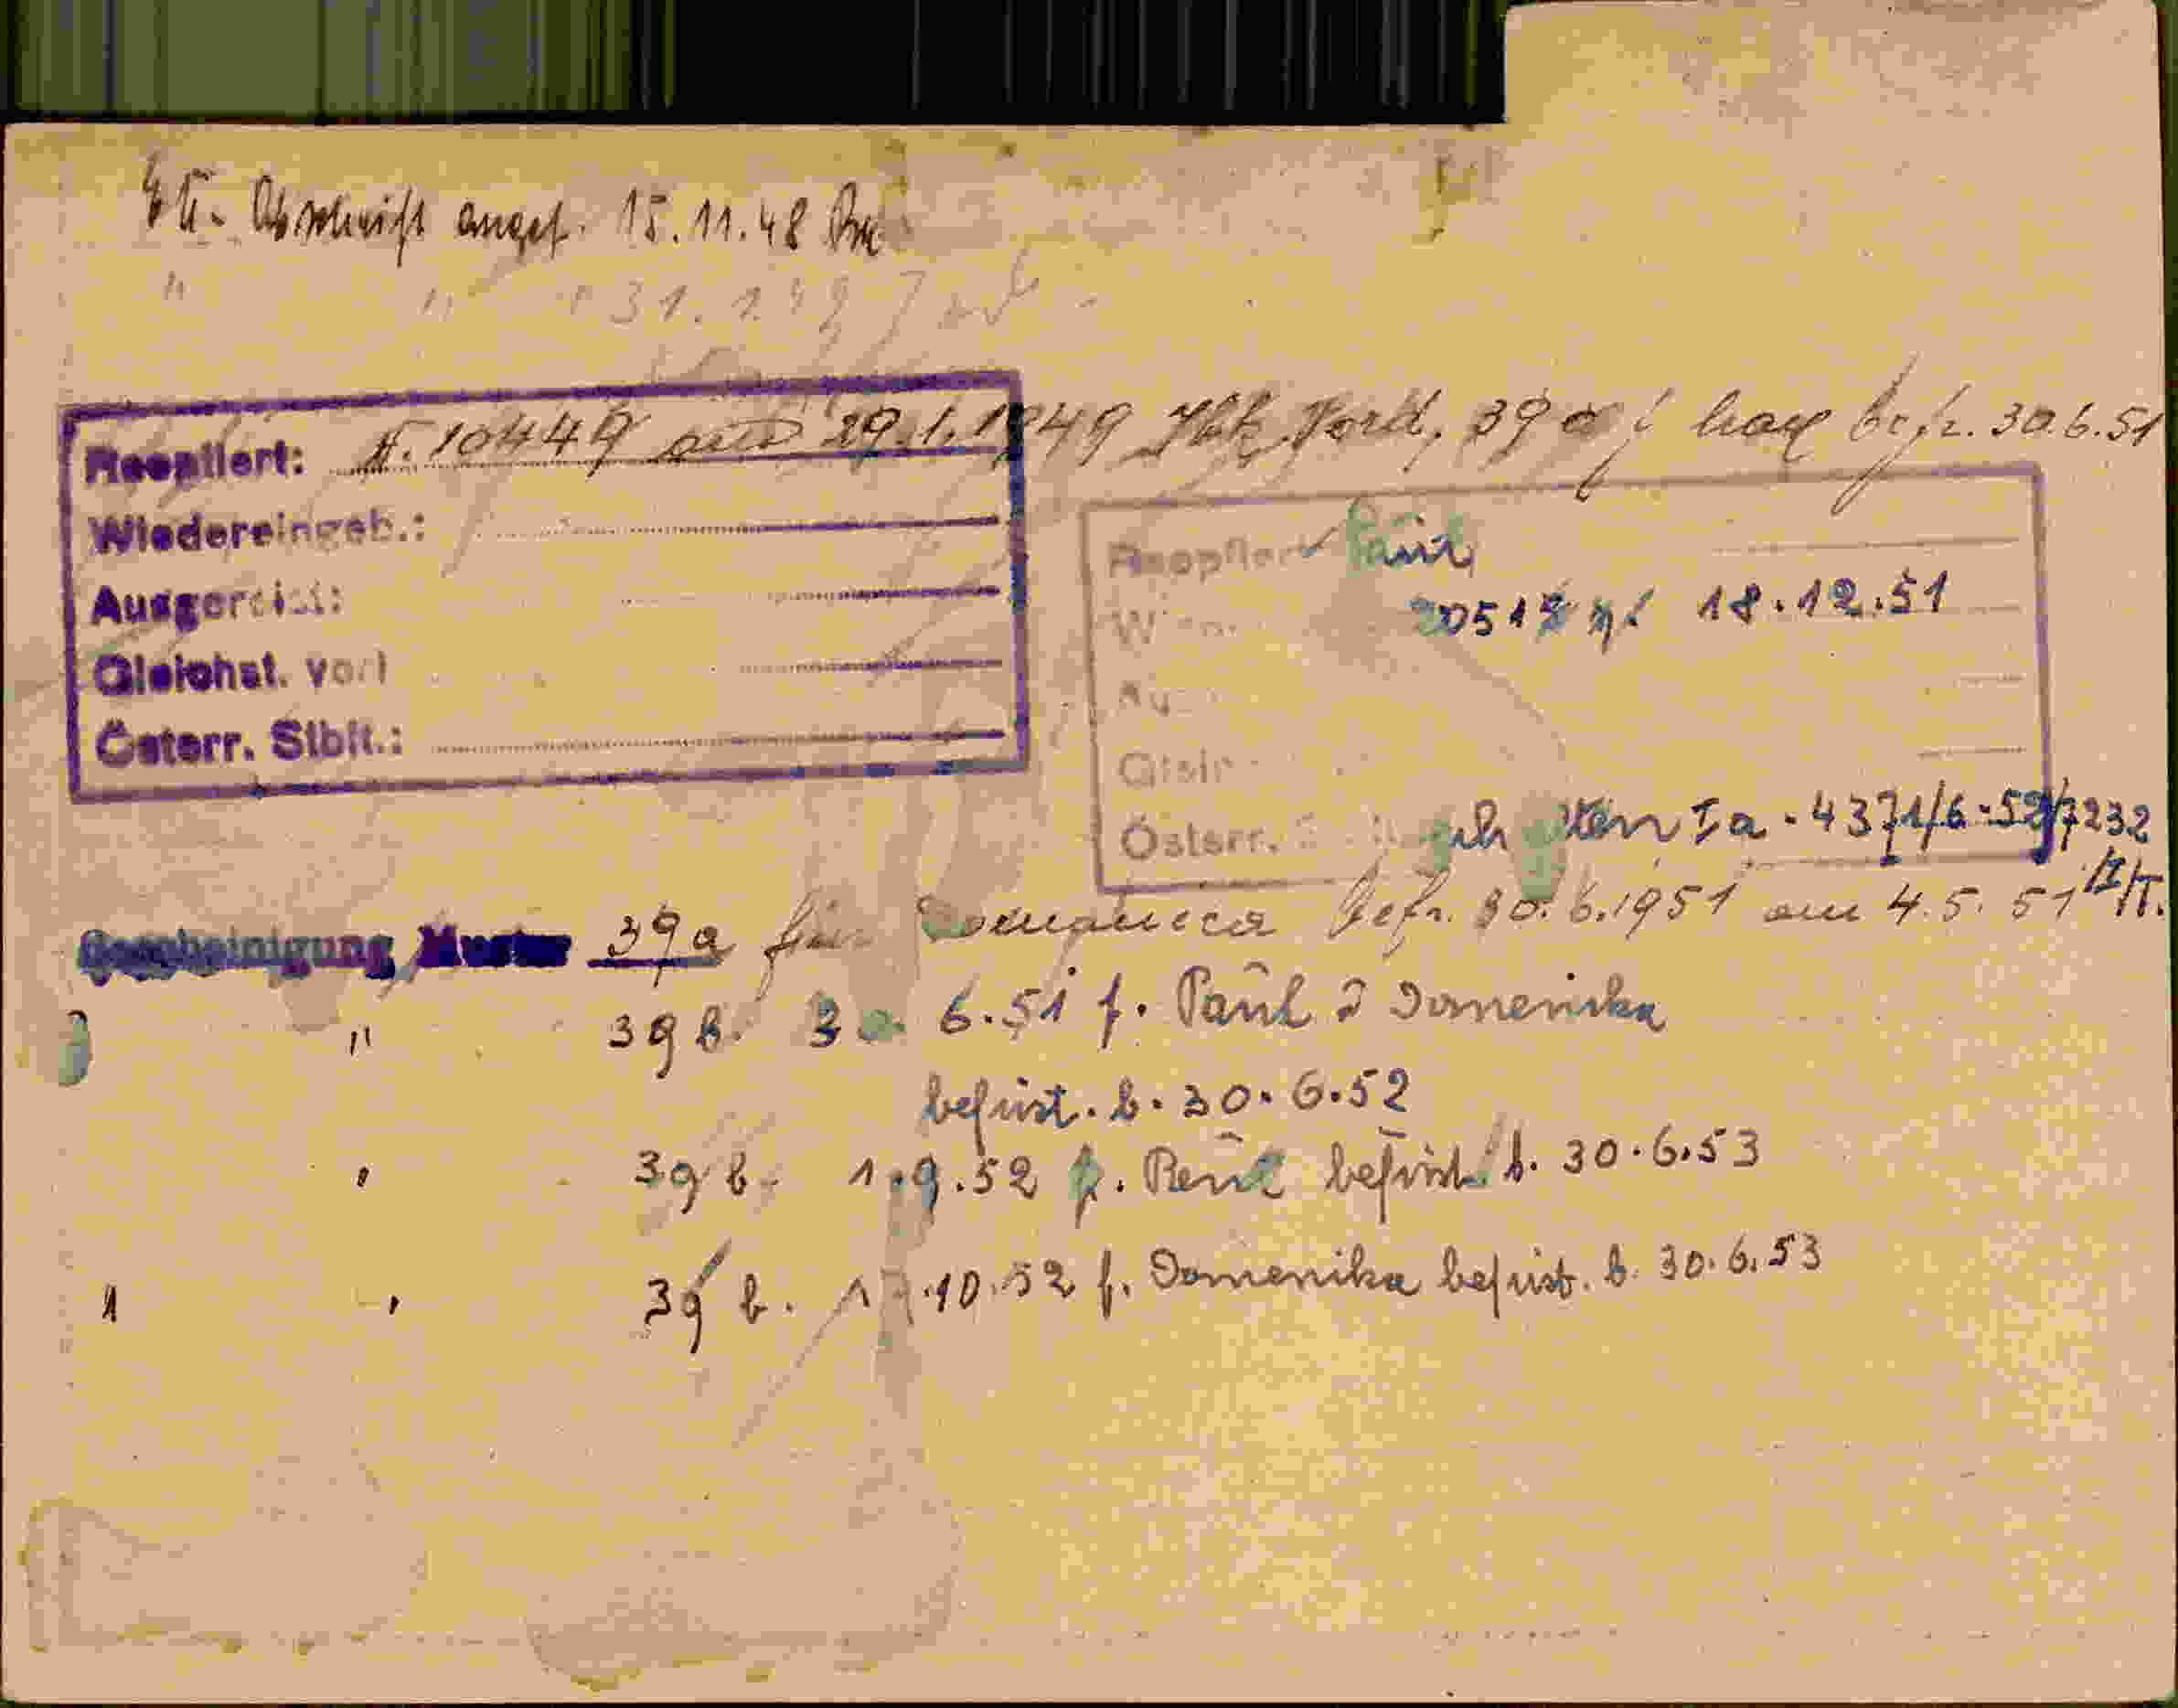 Abschrift angef. 15.11.48
" " " 31.1.49
Reoptiert: 10449 aus 29.1.1949 Ibk. Nord, 39a f. befr. 30.6.51
Wiedereingeb.:
Ausgereist:
Gleichst. vorl
Österr. Stblt.:
Reoptiert Paul
2051 18.12.51
Gleich
Österr. Ia-4371/6-52/7232
Bescheinigung Muster 39a für Domenica Befr. 30.6.1951 am 4.5.51
" 39 b. 30. 6.51 f. Paul & Domenika
befrist. b. 30.6.52
" 39 b. 1.9.52 f. Paul befrist. b. 30.6.53
" " 39 b. 17.10.52 f. Domenika befrist. b. 30.6.53